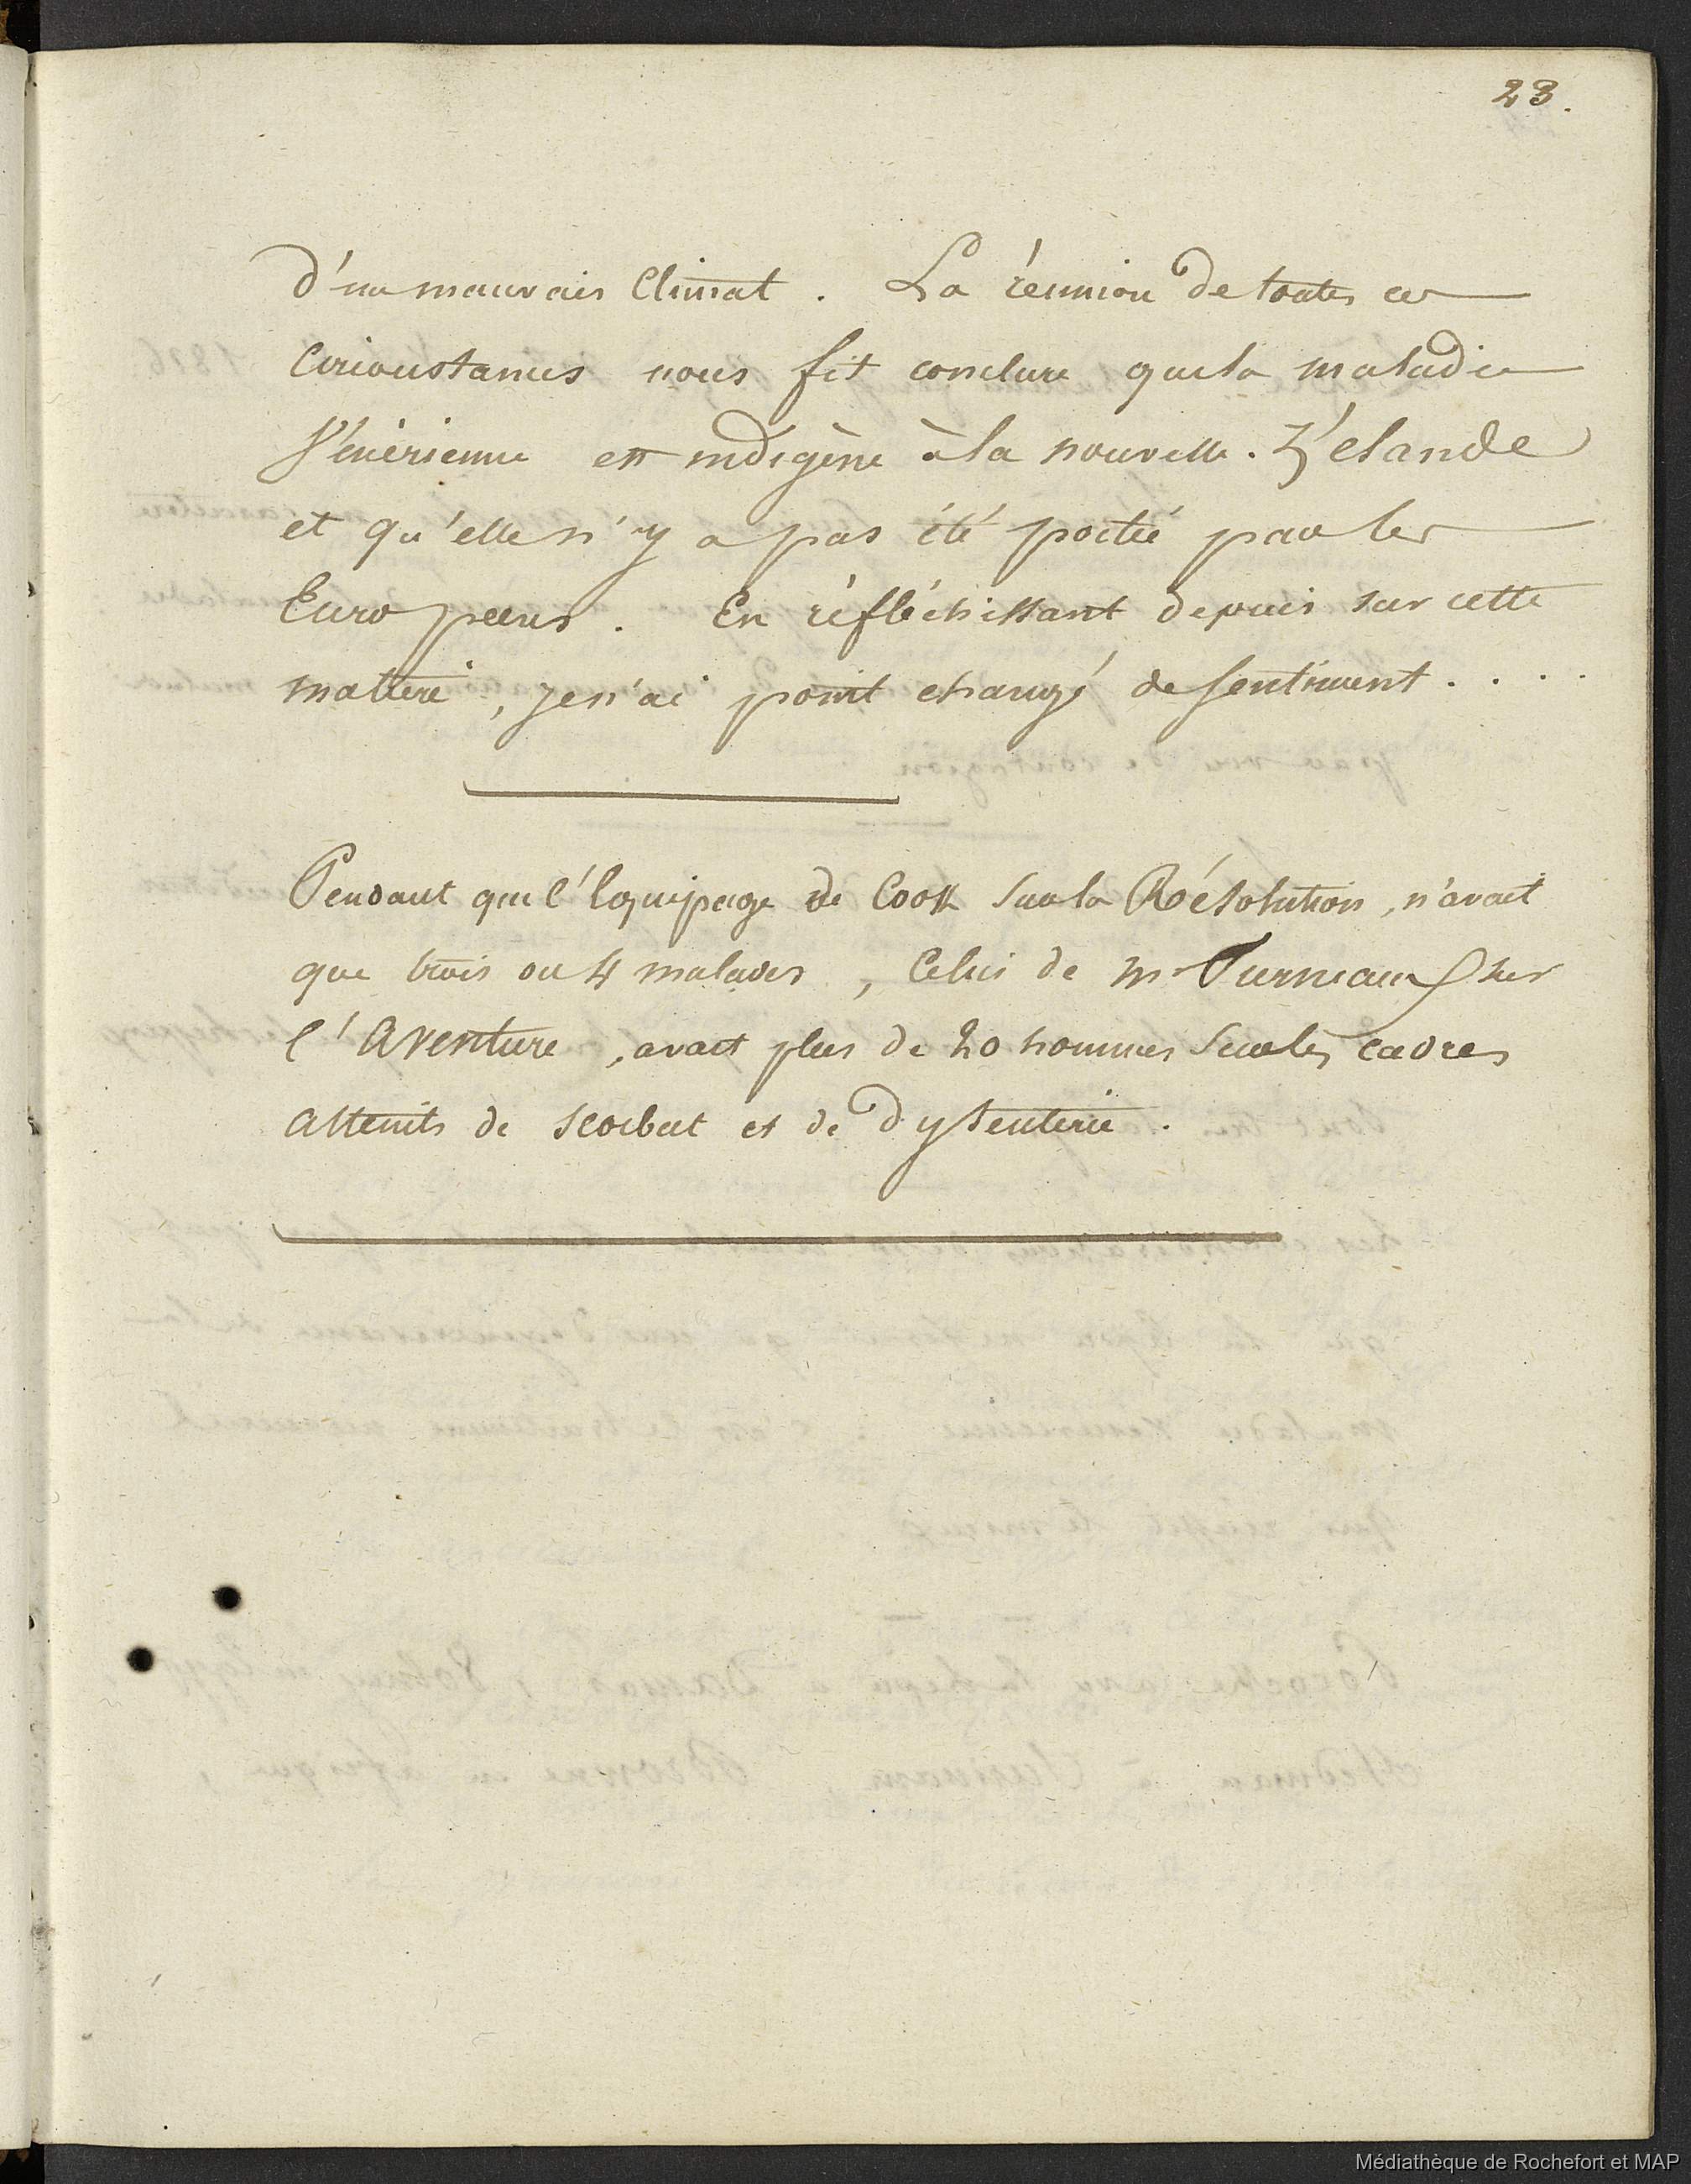 23.
d'un mauvais Climat. La réunion de toutes ces
Circonstances nous fit conclure que la maladie
Vénérienne est indigène à la nouvelle. Zélande
et qu'elle n'y a pas été portée par les
Européens. En réfléchissant depuis sur cette
matière, je n'ai point changé de sentiment....
Pendant que l'équipage de Cook sur la Résolution, n'avait
que trois ou 4 malades, Celui de mr Furneaux sur
l'Aventure, avait plus de 20 hommes sur les cadres
atteints de scorbut et de dysenterie.
Médiathèque de Rochefort et MAP